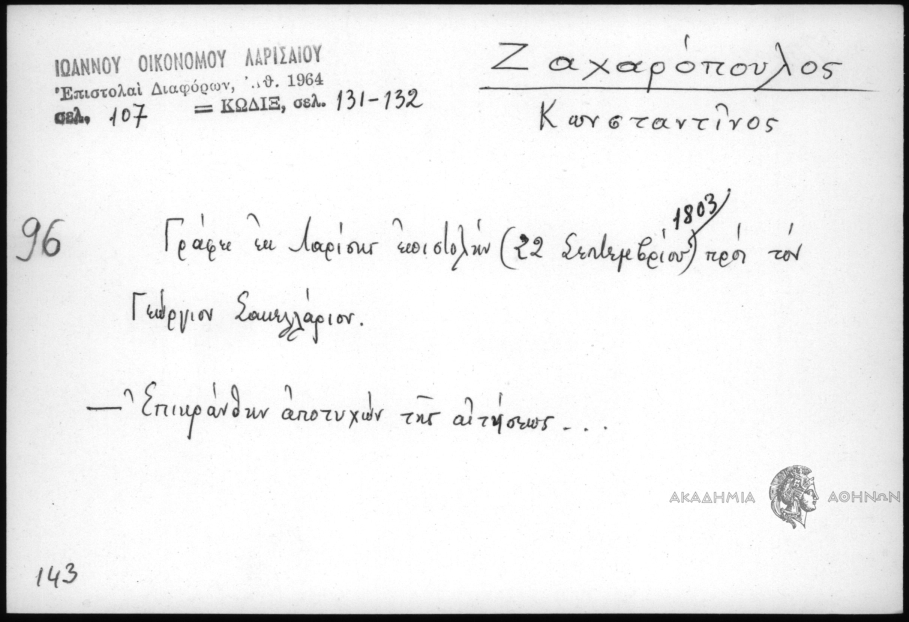 ΙΩΑΝΝΟΥ ΟΙΚΟΝΟΜΟΥ ΛΑΡΙΣΑΙΟΥ
Ἐπιστολαὶ Διαφόρων, 1964
σελ. 107 = ΚΩΔΙΞ, σελ. 131-132
Ζαχαρόπουλος
Κωνσταντῖνος
96
Γράφει ἐκ Λαρίσης ἐπιστολὴν (22 Σεπτεμβρίου 1803) πρὸς τὸν
Γεώργιον Σακελλάριον.
— Ἐπικράνθην ἀποτυχὼν τῆς αἰτήσεως . . .
ΑΚΑΔΗΜΙΑ ΑΘΗΝΩΝ
143